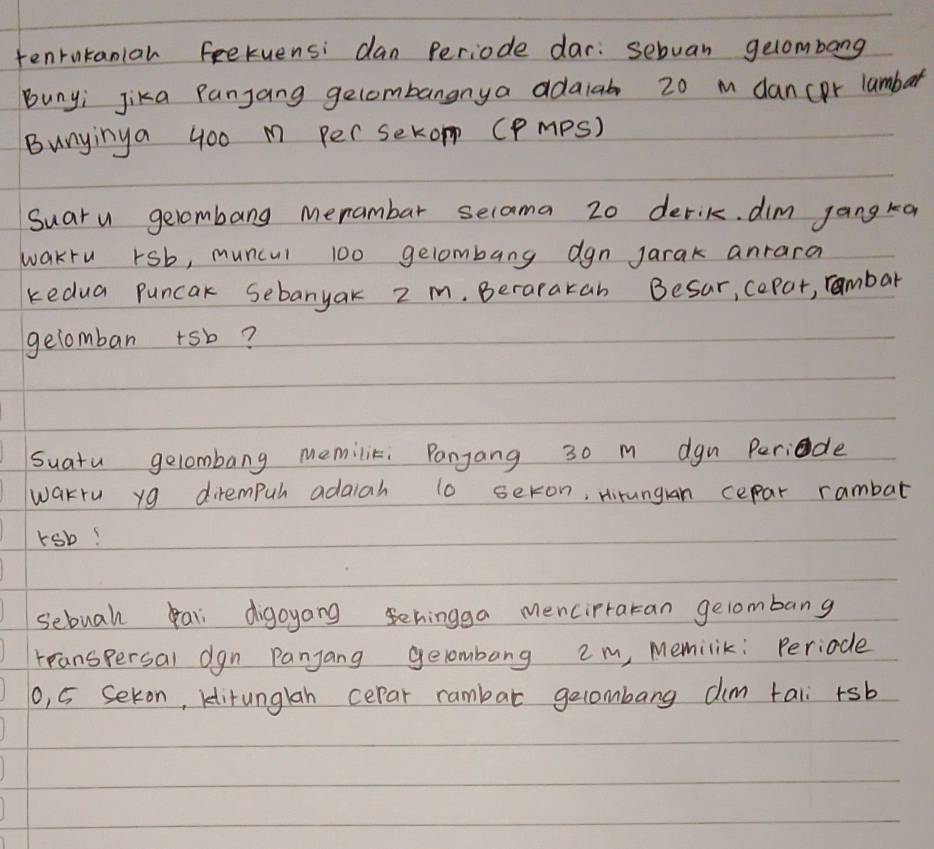 tentukanlah Feekuensi dan Periode dari sebuah gelombang
Bunyi jika Panjang gelombangnya adalah 20 m dan cpt lambat
Bunyinya 400 m Per sekon (P MPS)
Suatu gelombang Merambat selama 20 detik. dlm jangka
waktu tsb, muncul 100 gelombang dgn jarak antara
kedua Puncak Sebanyak 2 m. Berapakah Besar, cepat, rambat
gelomban tsb ?
Suatu gelombang memiliki Panjang 30 m dgn Periode
waktu yg ditempuh adalah 10 sekon. Hitunglah cepat rambat
tsb!
Sebuah tali digoyang sehingga menciptakan gelombang
transpersal dgn Panjang gelombang 2 m, Memiliki Periode
0,5 Sekon, Hitunglah cepat rambat gelombang dlm tali tsb